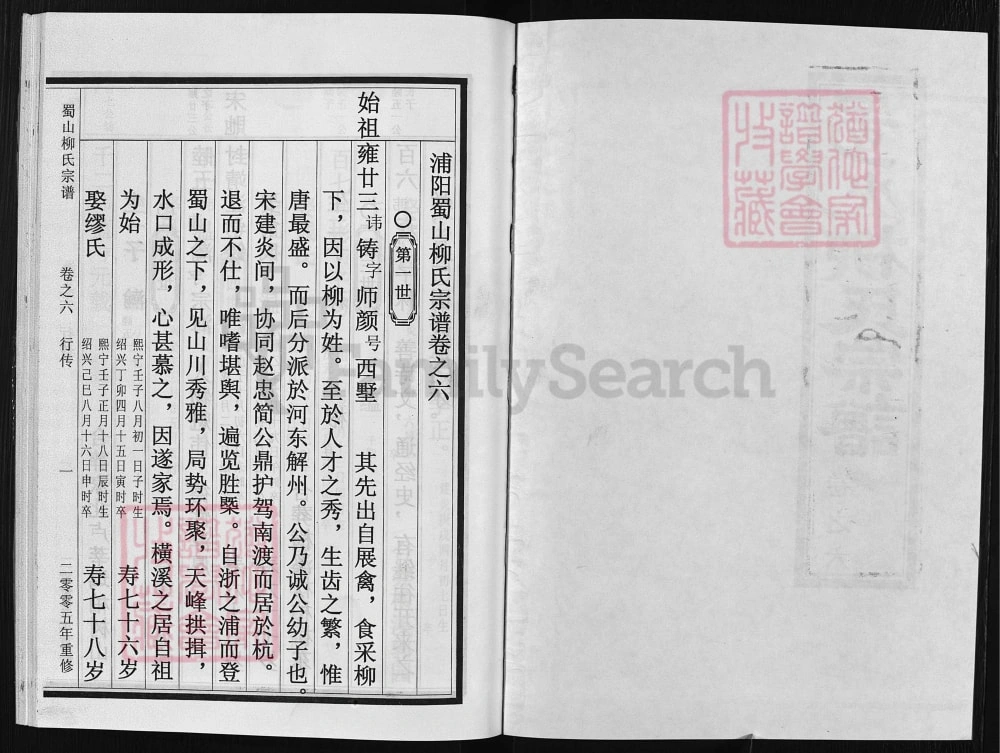 浦阳蜀山柳氏宗谱卷之六
第一世
始祖雍廿三讳铸字师颜号西墅 其先出自展禽，食采柳
下，因以柳为姓。至於人才之秀，生齿之繁，惟
唐最盛。而后分派於河东解州。公乃诚公幼子也。
宋建炎间，协同赵忠简公鼎护驾南渡而居於杭。
退而不仕，唯嗜堪舆，遍览胜槩。自浙之浦而登
蜀山之下，见山川秀雅，局势环聚，天峰拱揖，
水口成形，心甚慕之，因遂家焉。横溪之居自祖
为始
熙宁壬子八月初一日子时生
绍兴丁卯四月十五日寅时卒
寿七十六岁
娶缪氏
熙宁壬子正月十八日辰时生
绍兴己巳八月十六日申时卒
寿七十八岁
蜀山柳氏宗谱 卷之六 行传 一 二零零五年重修
FamilySearch
譜學會
收藏